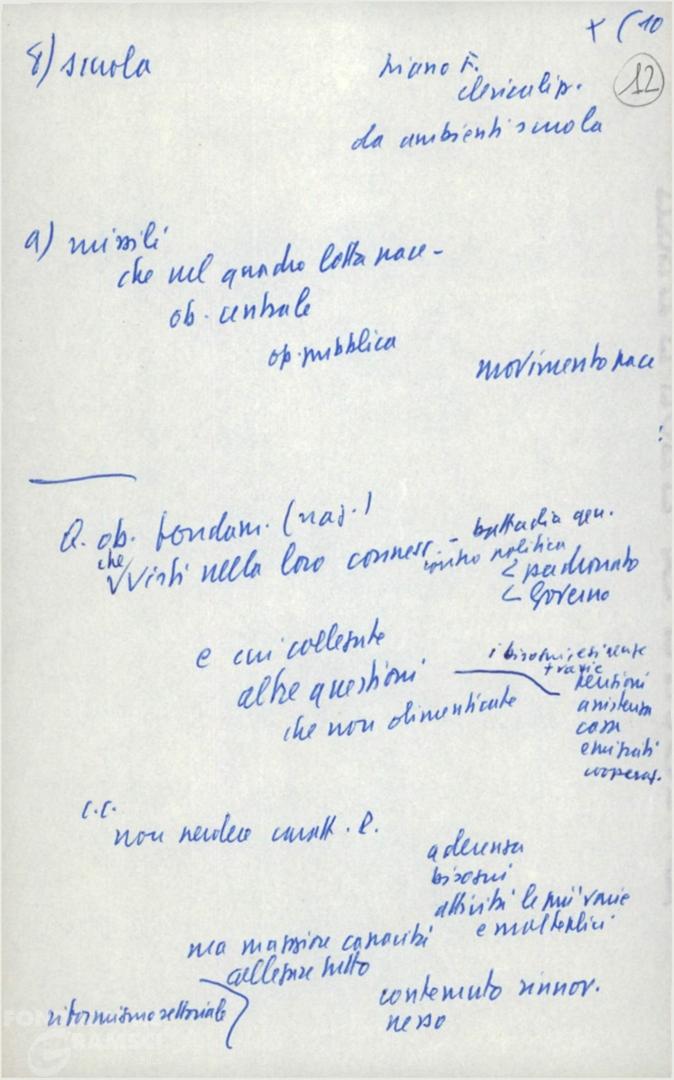 + ( 10
12
8) scuola
piano F.
clericalizz.
da ambienti scuola
9) missili
che nel quadro lotta pace -
ob. centrale
op. pubblica
movimento pace
:
Q. ob. fondam. (naz.)
che
visti nella loro conness. - battaglia gen.
contro politica
< padronato
< Governo
e cui collegate
altre questioni
che non dimenticate
i bisogni, esigenze
+ varie
pensioni
assistenza
casa
emigrati
cooperaz.
C.C.
non perdere caratt. R.
aderenza
bisogni
attività le più varie
e molteplici
ma maggiore capacità
collegare tutto
riformismo settoriale
contenuto rinnov.
nesso
FONDAZIONE
GRAMSCI